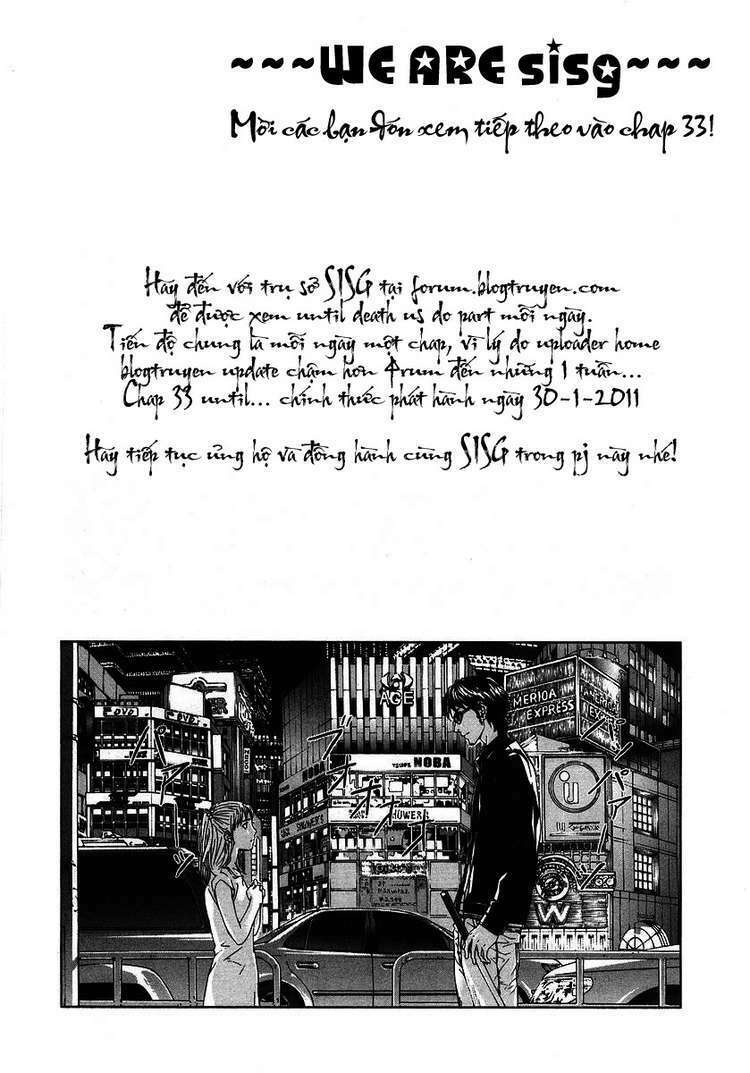 ~~~WE ARE sisg~~~
Mời các bạn đón xem tiếp theo vào chap 33!
Hãy đến với trụ sở SISG tại forum.blogtruyen.com
để được xem until death us do part mỗi ngày.
Tiến độ chung là mỗi ngày một chap, vì lý do uploader home
blogtruyen update chậm hơn 4rum đến những 1 tuần...
Chap 33 until... chính thức phát hành ngày 30-1-2011
Hãy tiếp tục ủng hộ và đồng hành cùng SISG trong pj này nhé!
AGE
MERIOA
EXPRESS
EXPRESS
DVD
DVD
NOBA
NOBA
HOWER
iu
W